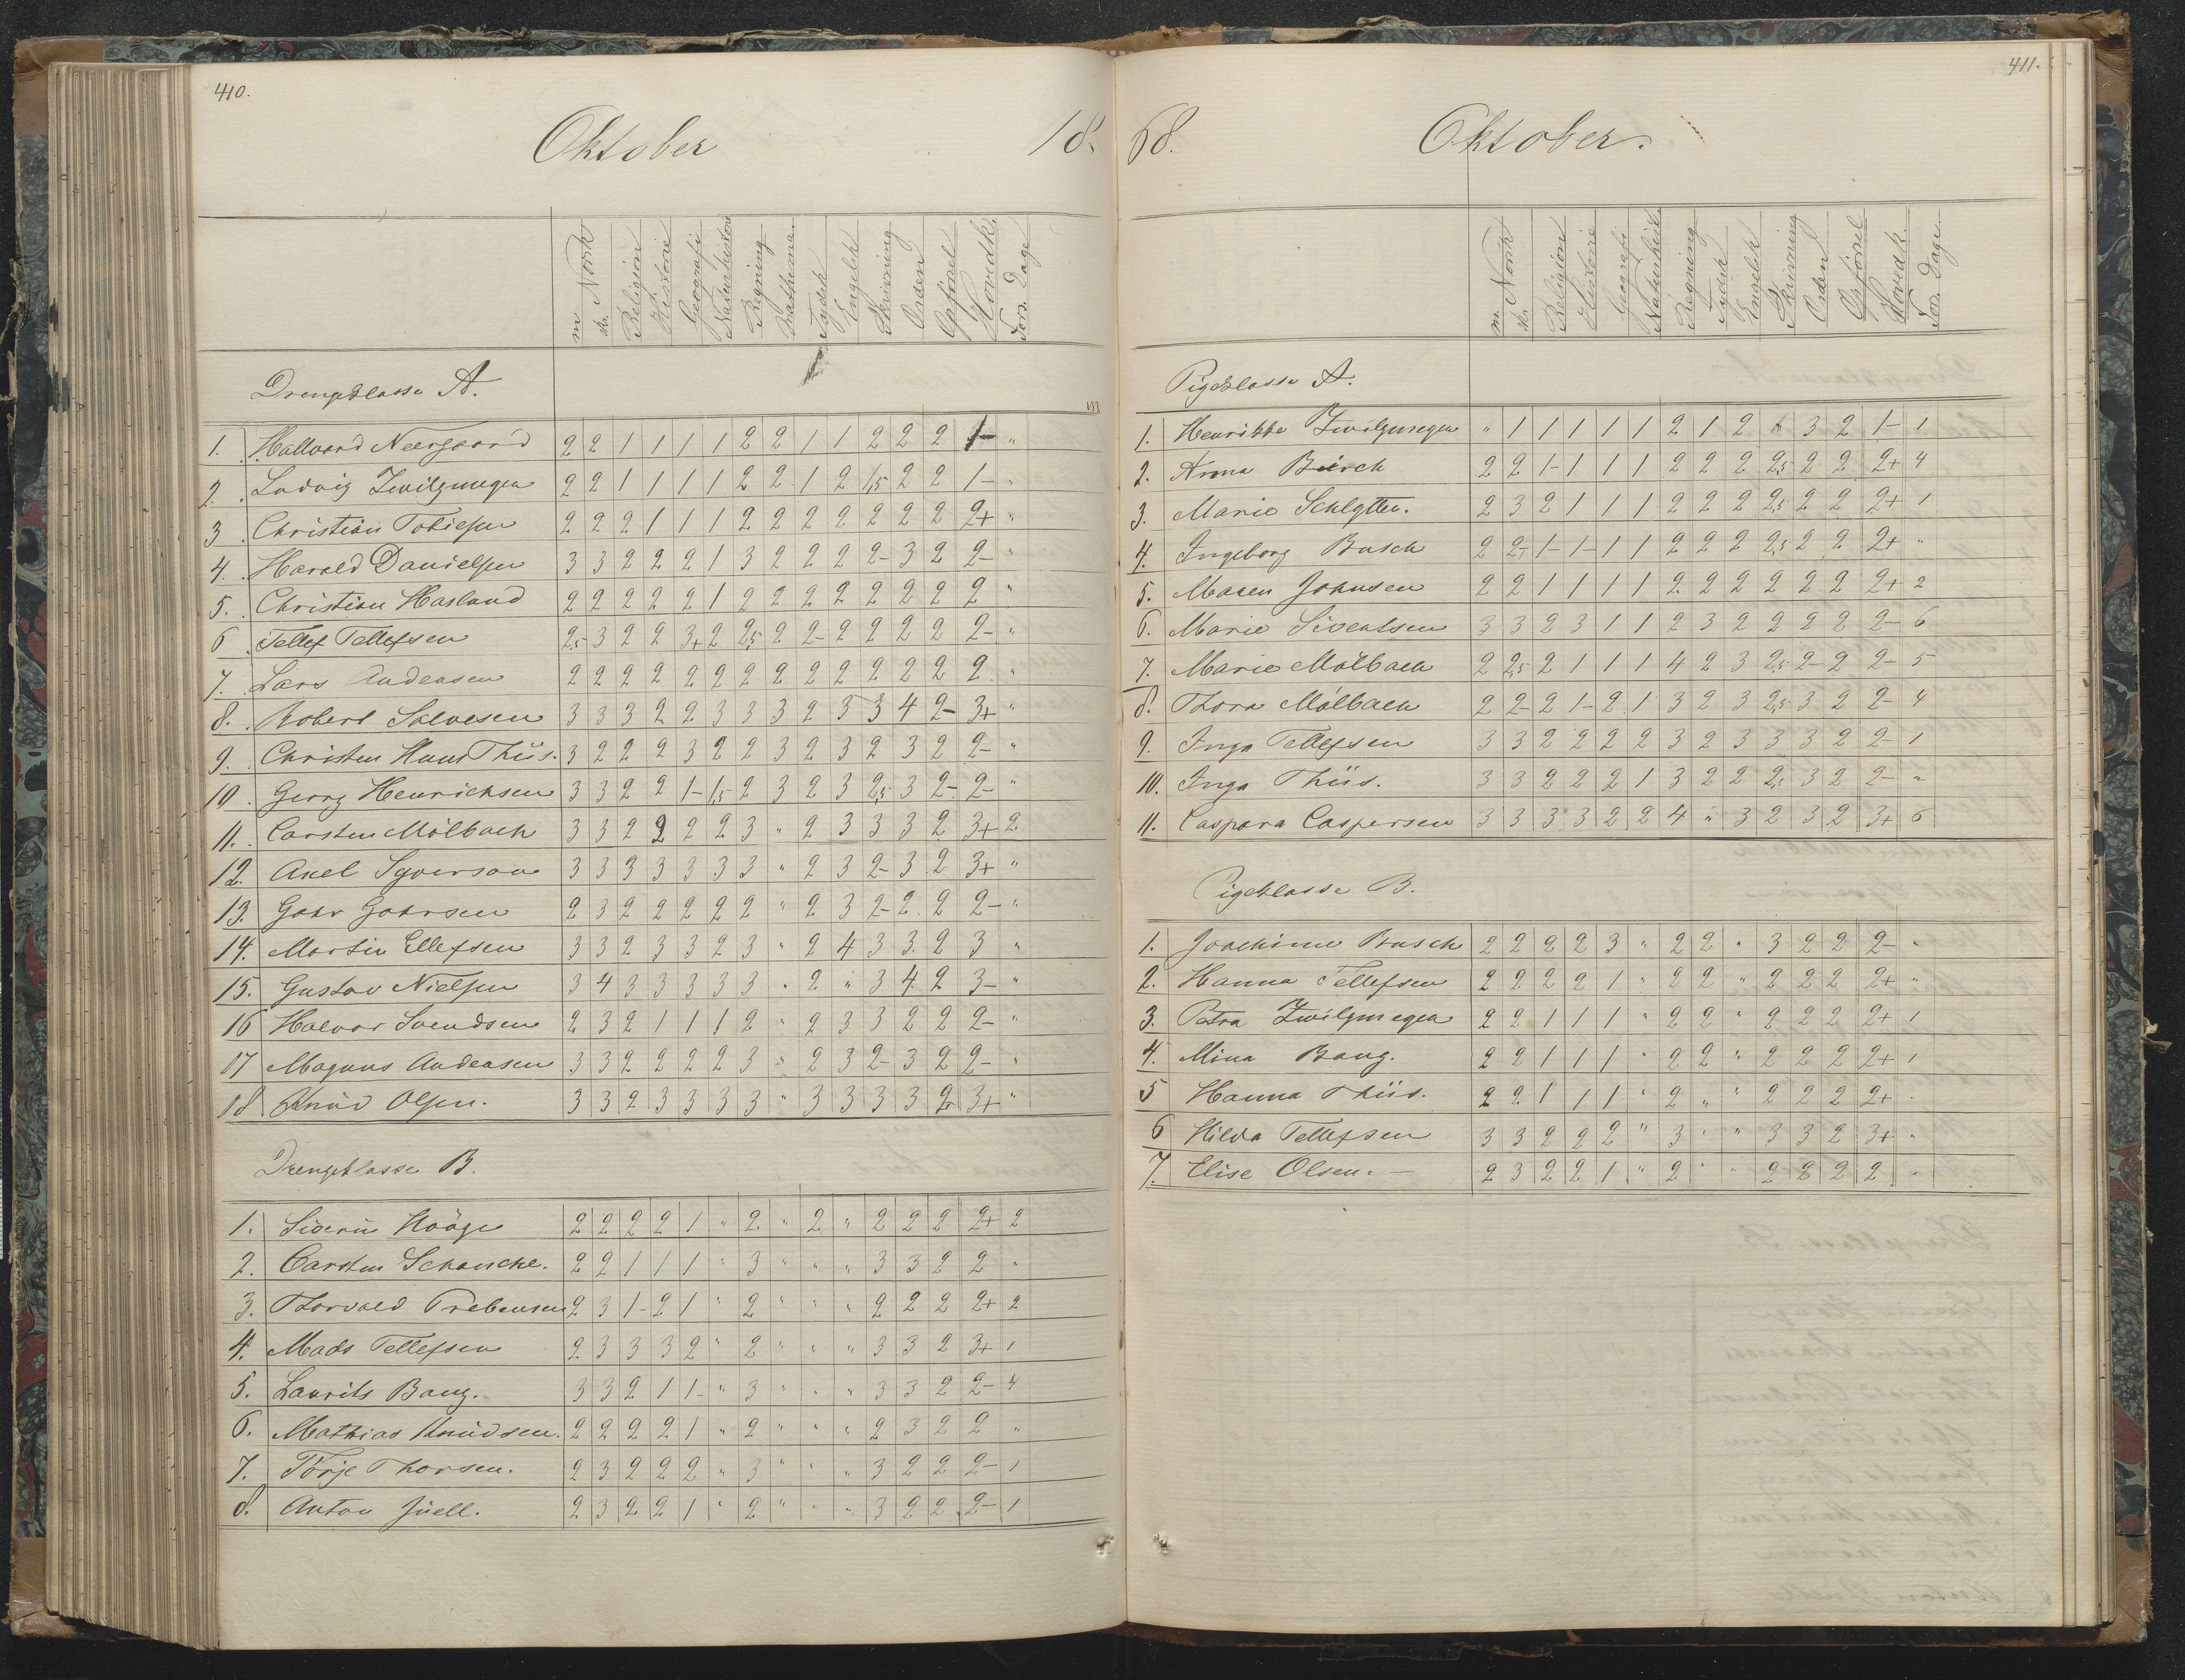 410.
Oktober 18.
m. Norsk
skr.
Religion
Historie
Geografi
Naturhistorie
Regning
Mathema.
Tydsk
Engelsk
Skrivning
Orden
Opførsel
Hovedk.
Fors. Dage
Drengeklasse A.
1. Hallvard Neergaard 2 2 1 1 1 1 2 2 1 1 2 2 2 1- "
2. Ludvig Zwilgmeyer 2 2 1 1 1 1 2 2 1 2 1,5 2 2 1- "
3. Christian Tobiesen 2 2 2 1 1 1 2 2 2 2 2 2 2 2+ "
4. Harald Danielsen 3 3 2 2 2 1 3 2 2 2 2- 3 2 2- "
5. Christian Hasland 2 2 2 2 2 1 2 2 2 2 2 2 2 2 "
6 Tellef Tellefsen 2,5 3 2 2 3+ 2 2,5 2 2- 2 2 2 2 2- "
7. Lars Andersen 2 2 2 2 2 2 2 2 2 2 2 2 2 2 "
8. Robert Salvesen 3 3 3 2 2 3 3 3 2 3 3 4 2- 3+ "
9. Christen Hans Thiis. 3 2 2 2 3 2 2 3 2 3 2 3 2 2- "
10. Georg Henrichsen 3 3 2 2 1- 1,5 2 3 2 3 2,5 3 2- 2- "
11. Carsten Mölbach 3 3 2 2 2 2 3 " 2 3 3 3 2 3+ 2
12. Axel Syverson 3 3 3 3 3 3 3 " 2 3 2- 3 2 3+ "
13. Gohr Gohrsen 2 3 2 2 2 2 2 " 2 3 2- 2 2 2- "
14. Martin Ellefsen 3 3 2 3 3 2 3 " 2 4 3 3 2 3 "
15. Gustav Nielsen 3 4 3 3 3 3 3 " 2 " 3 4 2 3- "
16 Halvor Svendsen 2 3 2 1 1 1 2 " 2 3 3 2 2 2- "
17 Magnus Andersen 3 3 2 2 2 2 3 " 2 3 2- 3 2 2- "
18 Knud Olsen. 3 3 2 3 3 3 3 " 3 3 3 3 2 3+ "
Drengeklasse B.
1. Siverin Hööge 2 2 2 2 1 " 2 " 2 " 2 2 2 2+ 2
2. Carsten Schancke. 2 2 1 1 1 " 3 " " " 3 3 2 2 "
3. Thorvald Prebensen 2 3 1- 2 1 " 2 " " " 2 2 2 2+ 2
4. Mads Tellefsen 2 3 3 3 2 " 2 " " " 3 3 2 3+ 1
5. Laurits Bang. 3 3 2 1 1- " 3 " " " 3 3 2 2- 4
6. Mathias Knudsen. 2 2 2 2 1 " 2 " " " 2 3 2 2 "
7. Törje Thorsen. 2 3 2 2 2 " 3 " " " 3 2 2 2- 1
8. Anton Juell. 2 3 2 2 1 " 2 " " " 3 2 2 2- 1
411.
68. Oktober.
m. Norsk
skr.
Religion
Historie
Geografi
Naturhist.
Regning
Tydsk
Engelsk
Skrivning
Orden
Opförsel
Hovedk.
Fors. Dage
Pigeklasse A.
1. Henrikke Zwilgmeyer " 1 1 1 1 1 2 1 2 3 2 1- 1
2. Anna Birch 2 2 1- 1 1 1 2 2 2 2,5 2 2 2+ 4
3. Marie Schlytter. 2 3 2 1 1 1 2 2 2 2,5 2 2 2+ 1
4. Ingeborg Busch 2 2- 1- 1- 1 1 2 2 2 2,5 2 2 2+ "
5. Maren Johnsen 2 2 1 1 1 1 2 2 2 2 2 2 2+ 2
6. Marie Siventsen 3 3 2 3 1 1 2 3 2 2 2 2 2- 6
7. Marie Mölbach 2 2,5 2 1 1 1 4 2 3 2,5 2- 2 2- 5
8. Thora Mölbach 2 2- 2 1- 2 1 3 2 3 2,5 3 2 2- 4
9. Inga Tellefsen 3 3 2 2 2 2 3 2 3 3 3 2 2- 1
10. Inga Thiis. 3 3 2 2 2 1 3 2 2 2,5 3 2 2- "
11. Caspara Caspersen 3 3 3 3 2 2 4 " 3 2 3 2 3+ 6
Pigeklasse B.
1. Joachime Busch 2 2 2 2 3 " 2 2 " 3 2 2 2- "
2. Hanna Tellefsen 2 2 2 2 1 " 2 2 " 2 2 2 2+ "
3. Petra Zwilgmeyer 2 2 1 1 1 " 2 2 " 2 2 2 2+ 1
4. Mina Bang. 2 2 1 1 1 " 2 2 " 2 2 2 2+ 1
5 Hanna Thiis. 2 2 1 1 1 " 2 " " 2 2 2 2+ "
6 Hilda Tellefsen 3 3 2 2 2 " 3 " " 3 3 2 3+ "
7. Elise Olsen. 2 3 2 2 1 " 2 " " 2 2 2 2 "